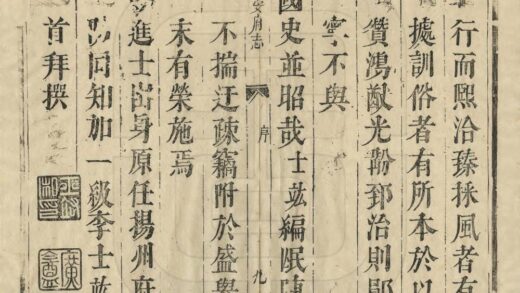 行而熙洽臻採風者有
據訓俗者有所本於以
贊鴻猷光郅治則郡
寧不與
國史並昭哉士竑編
府志 序 九
不揣迂疎竊附於盛
末有榮施焉
進士出身原任揚州府
同知加一級李士竑
首拜撰